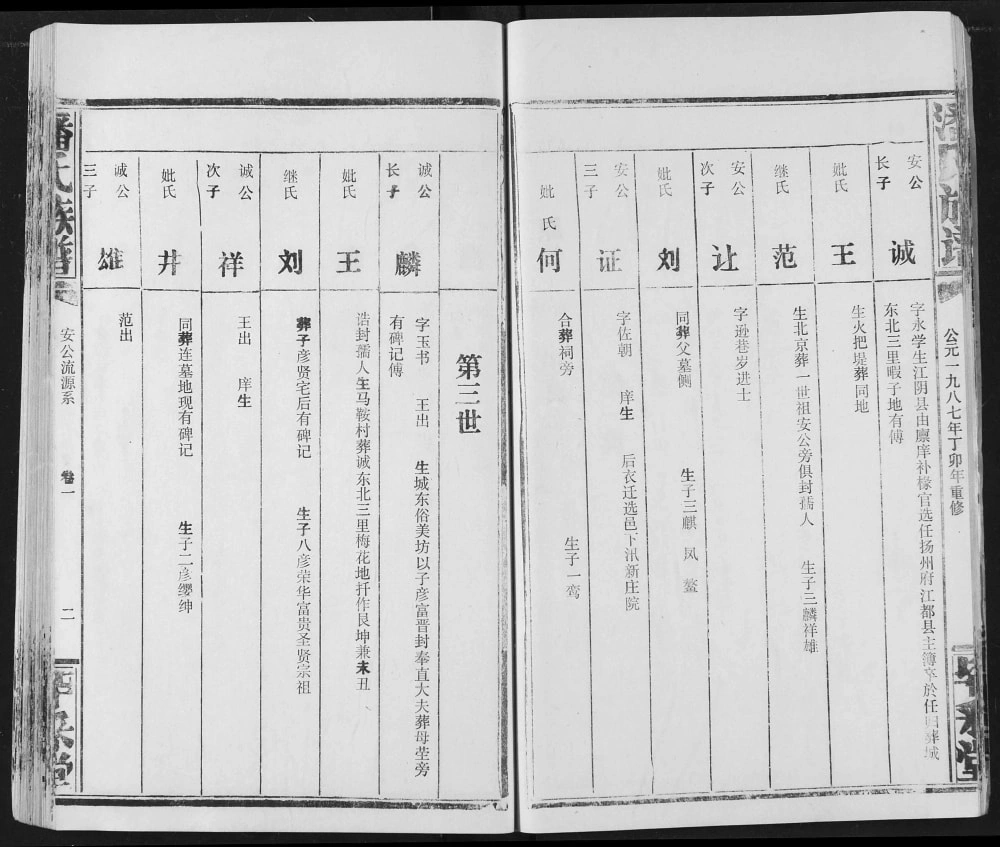 潘氏族谱
公元一九八七年丁卯年重修
安公
长子
诚
字永学生江阴县由廪庠补椽官选任扬州府江都县主簿卒於任归葬城
东北三里暇子地有傅
妣氏
王
生火把堤葬同地
继氏
范
生北京葬一世祖安公旁俱封孺人 生子三麟祥雄
安公
次子
让
字逊巷岁进士
妣氏
刘
同葬父墓侧 生子三麒 凤 鳌
安公
三子
证
字佐朝 庠生 后衣迁选邑下汛新庄院
妣氏
何
合葬祠旁 生子一鸾
第三世
诚公
长子
麟
字玉书 王出 生城东俗美坊以子彦富晋封奉直大夫葬母茔旁
有碑记傅
妣氏
王
诰封孺人生马鞍村葬诚东北三里梅花地扦作艮坤兼末丑
继氏
刘
葬子彦贤宅后有碑记 生子八彦荣华富贵圣贤宗祖
诚公
次子
祥
王出 庠生
妣氏
井
同葬连墓地现有碑记 生子二彦缨绅
诚公
三子
雄
范出
潘氏族谱
安公流源系
卷一
二